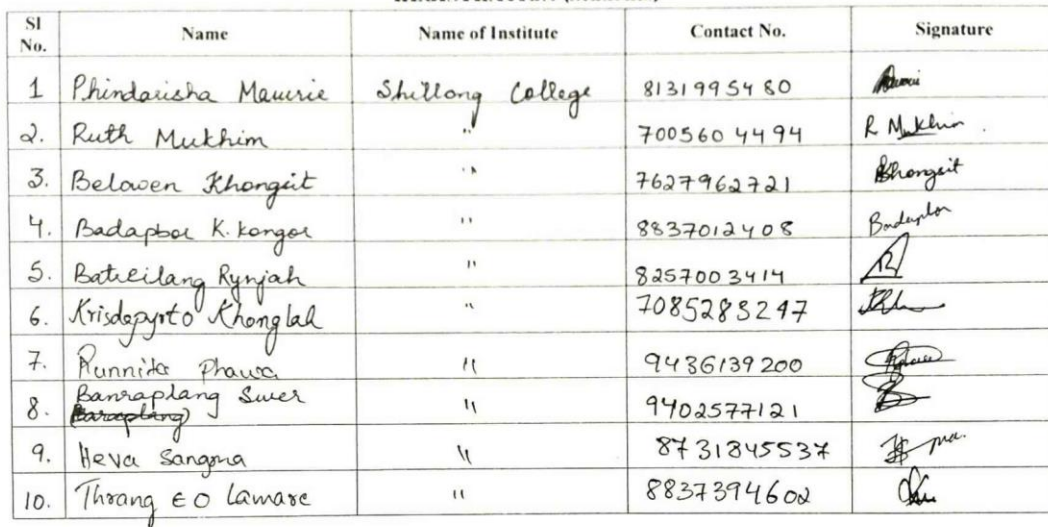 Sl No. Name Name of Institute Contact No. Signature
1 Phindarisha Mawrie Shillong College 8131995480
2. Ruth Mukhim " 7005604494 R Mukhim
3. Belowen Khongsit " 7627962721 Bhongsit
4. Badapbor K. Kongor " 8837012408 Badapbor
5. Batreilang Rynjah " 8257003414
6. Krisdapyrto Khonglah " 7085283247
7. Runnita Phawa " 9436139200
8. Banraplang Swer " 9402577121
(Baraplang)
9. Heva Sangma " 8731845537
10. Thrang E O Lamare " 8837394602